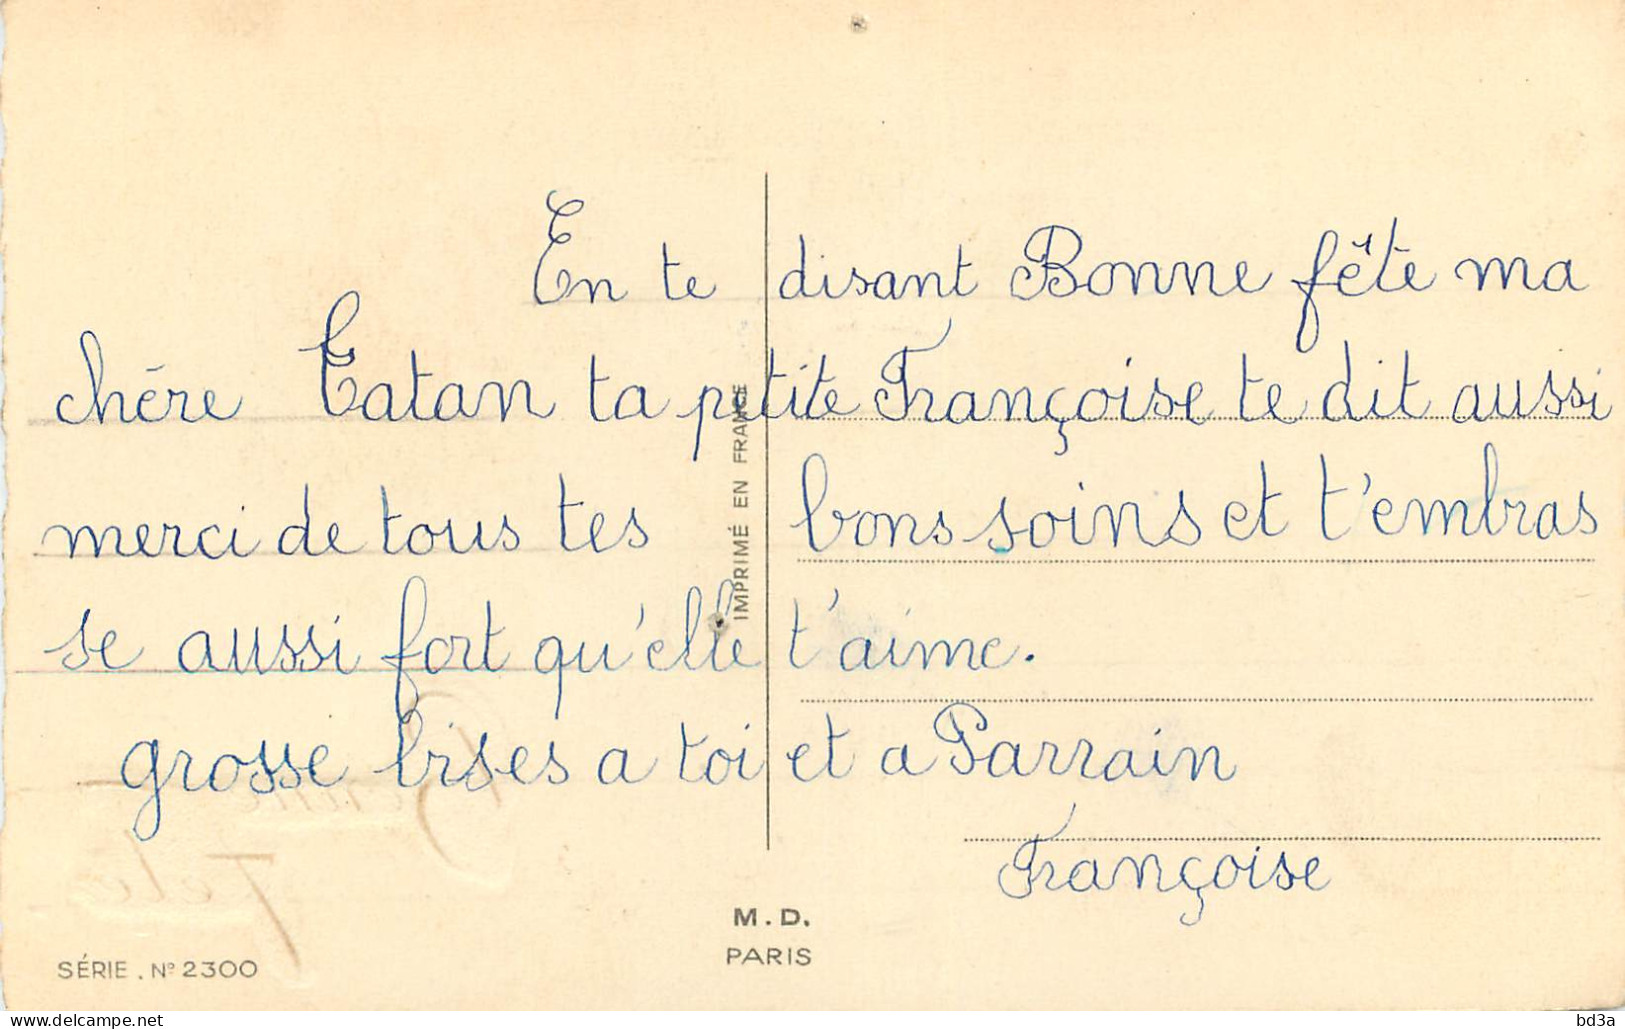 En te disant Bonne fête ma
chère Tatan ta petite Françoise te dit aussi
merci de tous tes bons soins et t'embras
se aussi fort qu'elle t'aime.
grosse bises a toi et a Parrain
Françoise
IMPRIMÉ EN FRANCE
M.D.
PARIS
SÉRIE. Nº 2300
Bonne
Fête
delcampe.net
bd3a